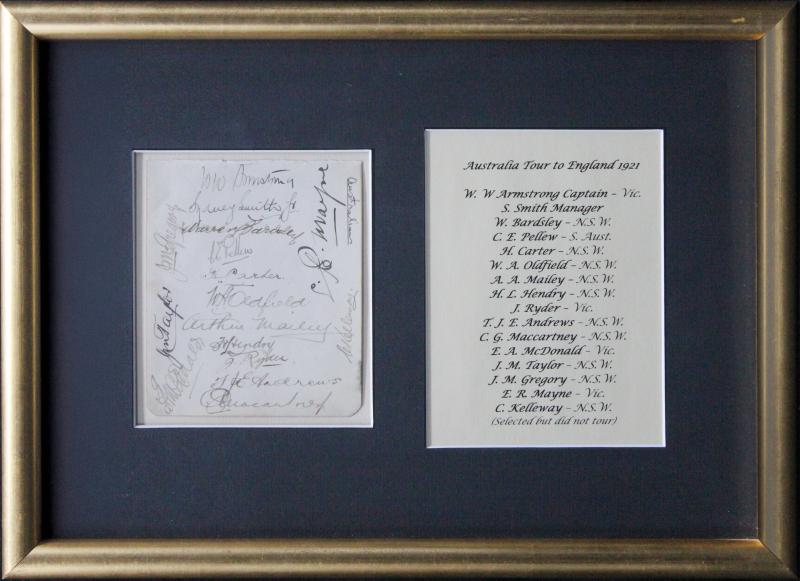 W W Armstrong
Sydney Smith Jr
Warren Bardsley
C E Pellew
H Carter
W A Oldfield
Arthur Mailey
H L Hendry
J. Ryder
T J E Andrews
C G Macartney
J M Taylor
J M Gregory
E. R. Mayne
Australians
Australia Tour to England 1921
W. W Armstrong Captain – Vic.
S. Smith Manager
W. Bardsley – N.S.W.
C. E. Pellew – S. Aust.
H. Carter – N.S.W.
W. A. Oldfield – N.S.W.
A. A. Mailey – N.S.W.
H. L. Hendry – N.S.W.
J. Ryder – Vic.
T. J. E. Andrews – N.S.W.
C. G. Maccartney – N.S.W.
E. A. McDonald – Vic.
J. M. Taylor – N.S.W.
J. M. Gregory – N.S.W.
E. R. Mayne – Vic.
C. Kelleway – N.S.W.
(Selected but did not tour)